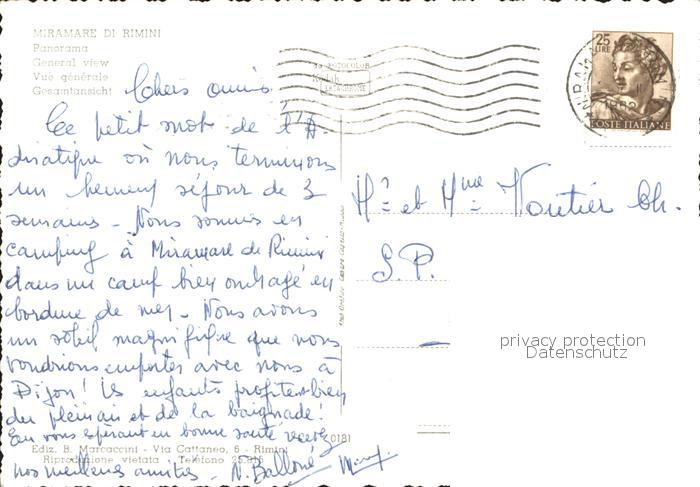 MIRAMARE DI RIMINI
Panorama
General view
Vue générale
Gesamtansicht
FOTOCOLOR
Kodak
EKTACHROME
25
LIRE
POSTE ITALIANE
Chers amis
Ce petit mot de l'A-
driatique où nous terminons
un heureux séjour de 3
semaines - Nous sommes en
camping à Miramare de Rimini
dans un camp bien ombragé en
bordure de mer - Nous avons
un soleil magnifique que nous
voudrions emporter avec nous à
Dijon! Les enfants profitent bien
du plein air et de la baignade!
En vous espérant en bonne santé recevez
nos meilleures amitiés - N. Balloné
Mr et Mme Voutier Ch.
S.P.
privacy protection
Datenschutz
0181
Ediz. B. Marcaccini - Via Cattaneo, 6 - Rimini
Riproduzione vietata - Telefono